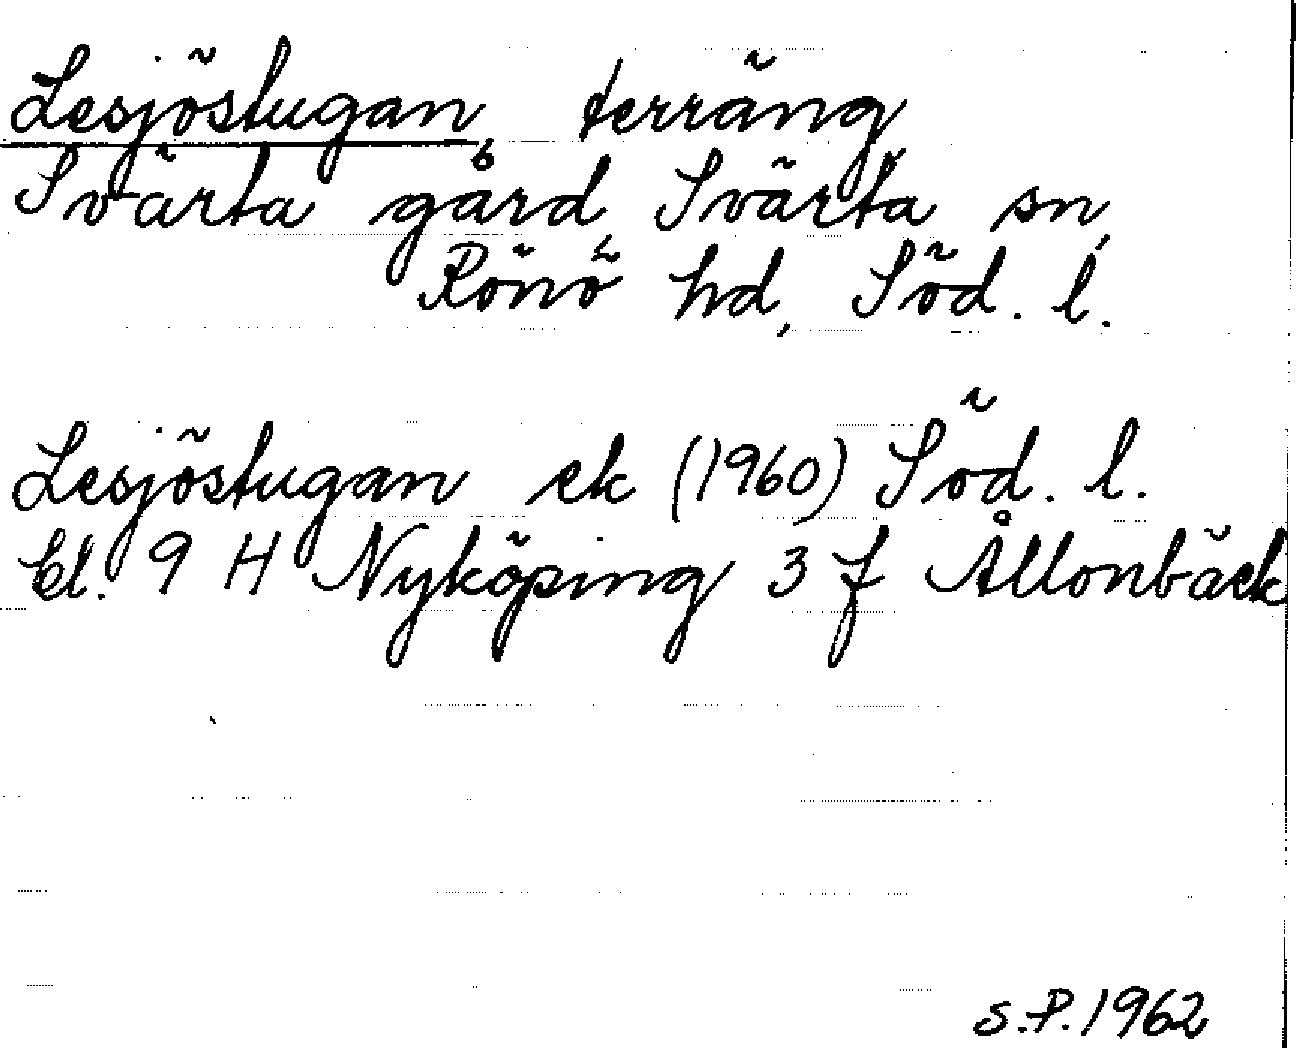 Lesjöstugan, terräng
Svärta gård, Svärta sn,
Rönö hd, Söd. l.
Lesjöstugan ek (1960) Söd. l.
bl. 9 H Nyköping 3 f Ållonbäck
S.P. 1962